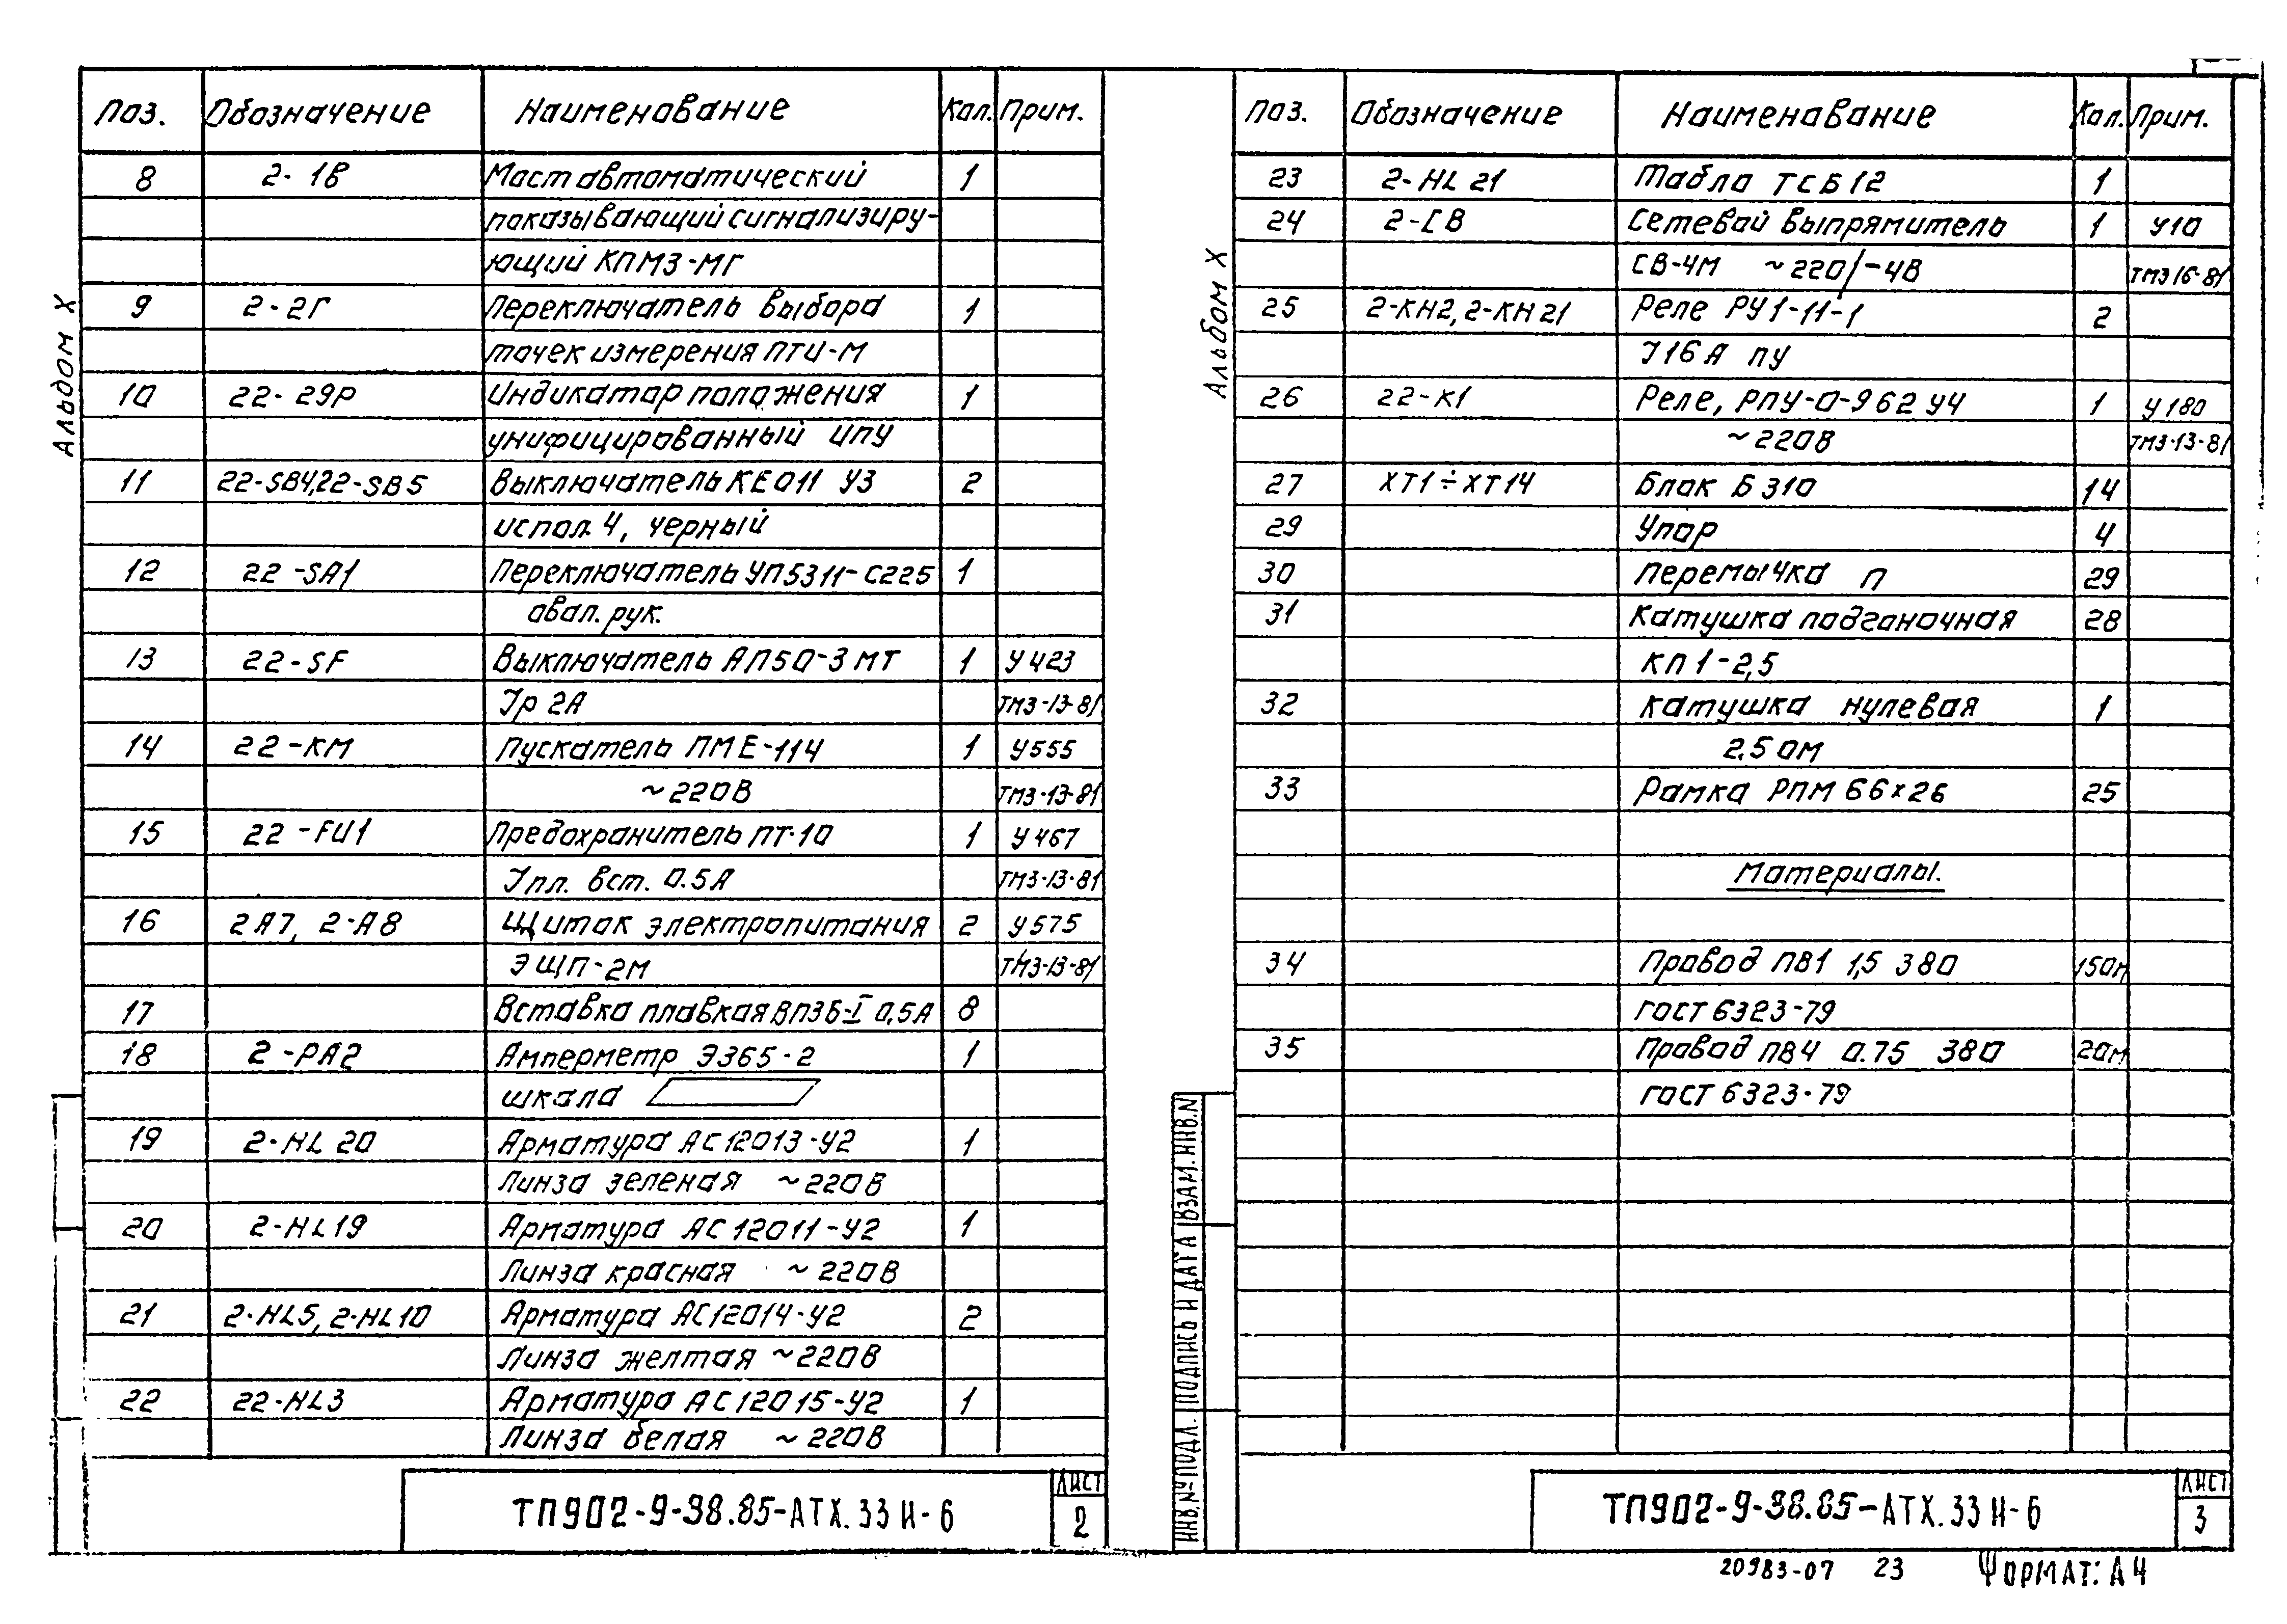 Альбом X
Поз. Обозначение Наименование Кол. Прим.
8 2-1В Мост автоматический 1
показывающий сигнализиру-
ющий КПМЗ-МГ
9 2-2Г Переключатель выбора 1
точек измерения ПТИ-М
10 22-29Р Индикатор положения 1
унифицированный ИПУ
11 22-SB4,22-SB5 Выключатель КЕ011 У3 2
испол.4, черный
12 22-SA1 Переключатель УП5311-С225 1
овал. рук.
13 22-SF Выключатель АП50-3МТ 1 У423
Iр 2А ТМ3-13-81
14 22-КМ Пускатель ПМЕ-114 1 У555
~220В ТМ3-13-81
15 22-FU1 Предохранитель ПТ-10 1 У467
Iпл. вст. 0.5А ТМ3-13-81
16 2А7, 2-А8 Щиток электропитания 2 У575
ЭЩП-2М ТМ3-13-81
17 Вставка плавкая ВП3Б-I 0,5А 8
18 2-РА2 Амперметр Э365-2 1
шкала
19 2-HL20 Арматура АС12013-У2 1
Линза зеленая ~220В
20 2-HL19 Арматура АС12011-У2 1
Линза красная ~220В
21 2-HL5, 2-HL10 Арматура АС12014-У2 2
Линза желтая ~220В
22 22-HL3 Арматура АС12015-У2 1
Линза белая ~220В
ТП902-9-38.85-АТХ.33И-6
ЛИСТ
2
Альбом X
Поз. Обозначение Наименование Кол. Прим.
23 2-HL21 Табло ТСБ12 1
24 2-СВ Сетевой выпрямитель 1 У10
СВ-4М ~220/-4В ТМ3 16-81
25 2-КН2, 2-КН21 Реле РУ1-11-1 2
I16А ПУ
26 22-К1 Реле, РПУ-0-962У4 1 У180
~220В ТМ3-13-81
27 ХТ1÷ХТ14 Блок Б310 14
29 Упор 4
30 Перемычка П 29
31 Катушка подгоночная 28
КП1-2,5
32 Катушка нулевая 1
2,5 Ом
33 Рамка РПМ 66×26 25
Материалы.
34 Провод ПВ1 1,5 380 150м
ГОСТ 6323-79
35 Провод ПВ4 0.75 380 20м
ГОСТ 6323-79
ИНВ.№ПОДЛ. ПОДПИСЬ И ДАТА ВЗАМ.ИНВ.N
ТП902-9-38.85-АТХ.33И-6
ЛИСТ
3
20983-07 23 ФОРМАТ: А4